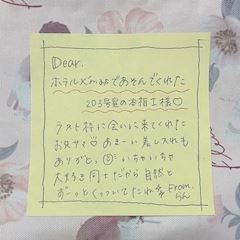 Dear.
ホテルXmasであそんでくれた
203号室の本指１様♡
ラスト枠に会いに来てくれた
お兄サマ あまーい差し入れも
ありがと。☺ いちゃいちゃ
大好き同士だから自然と
ずーっとくっついてたね
From.
らん